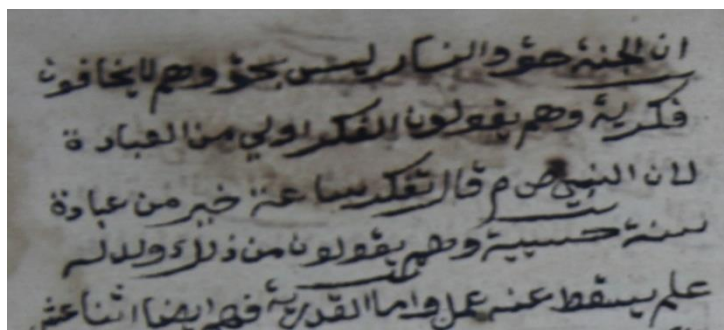 ان الجنة حق والنار ليس بحق وهم لا يخافون
فكرية وهم يقولون الفكر اولي من العبادة
لان النبي ص م قال تفكر ساعة خير من عبادة
سنة وهم يقولون من ذلك ولد له
علم يسقط عنه عمل واما القدرية فهم ايضا اثنا عشر